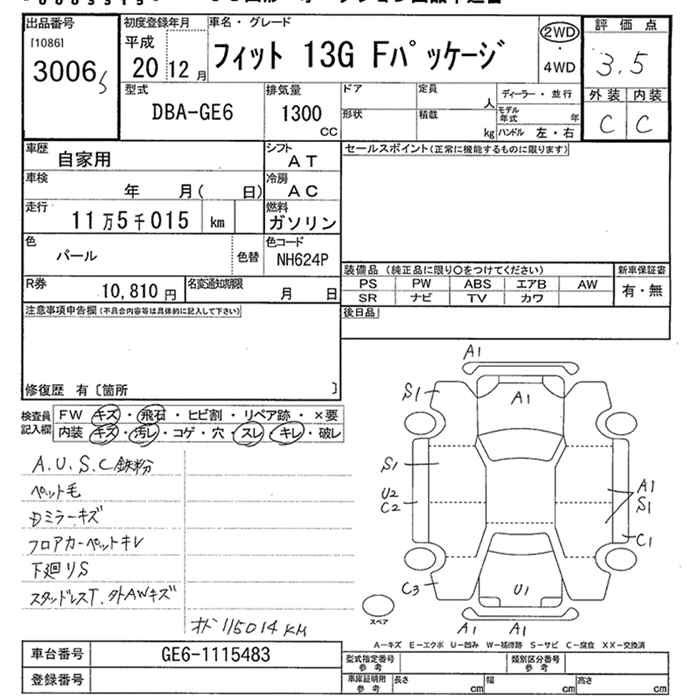 出品番号
[1086]
3006s
初度登録年月
平成
20 12月
車名・グレード
フィット 13G Fパッケージ
2WD
・
4WD
評価点
3.5
外装 内装
C C
型式
DBA-GE6
排気量
1300
CC
ドア
定員
人
ディーラー・並行
形状
積載
kg
モデル年式
年
ハンドル 左・右
車歴
自家用
シフト
AT
セールスポイント(正常に機能するものに限ります)
車検
年 月( 日)
冷房
AC
走行
11万5千015 km
燃料
ガソリン
色
パール
色替
色コード
NH624P
R券
10,810円
名変通知期限
月 日
装備品(純正品に限り○をつけてください)
新車保証書
PS PW ABS エアB AW
有・無
SR ナビ TV カワ
後日品
注意事項申告欄(不具合内容等は具体的に記入して下さい)
修復歴 有〔箇所 〕
検査員記入欄
FW キズ・飛石・ヒビ割・リペア跡・×要
内装 キズ・汚レ・コゲ・穴・スレ・キレ・破レ
A.U.S.C鉄粉
ペット毛
ミラーキズ
フロアカーペットキレ
下廻りS
スタッドレスT.外AWキズ
115014KM
A1
S1
A1
S1
U2
C2
A1
S1
C1
C3
U1
A1 A1
スペア
A-キズ E-エクボ U-凹み W-補修跡 S-サビ C-腐食 XX-交換済
車台番号
GE6-1115483
登録番号
型式指定番号
参考
類別区分番号
参考
車庫証明用
参考
長さ
cm
幅
cm
高さ
cm